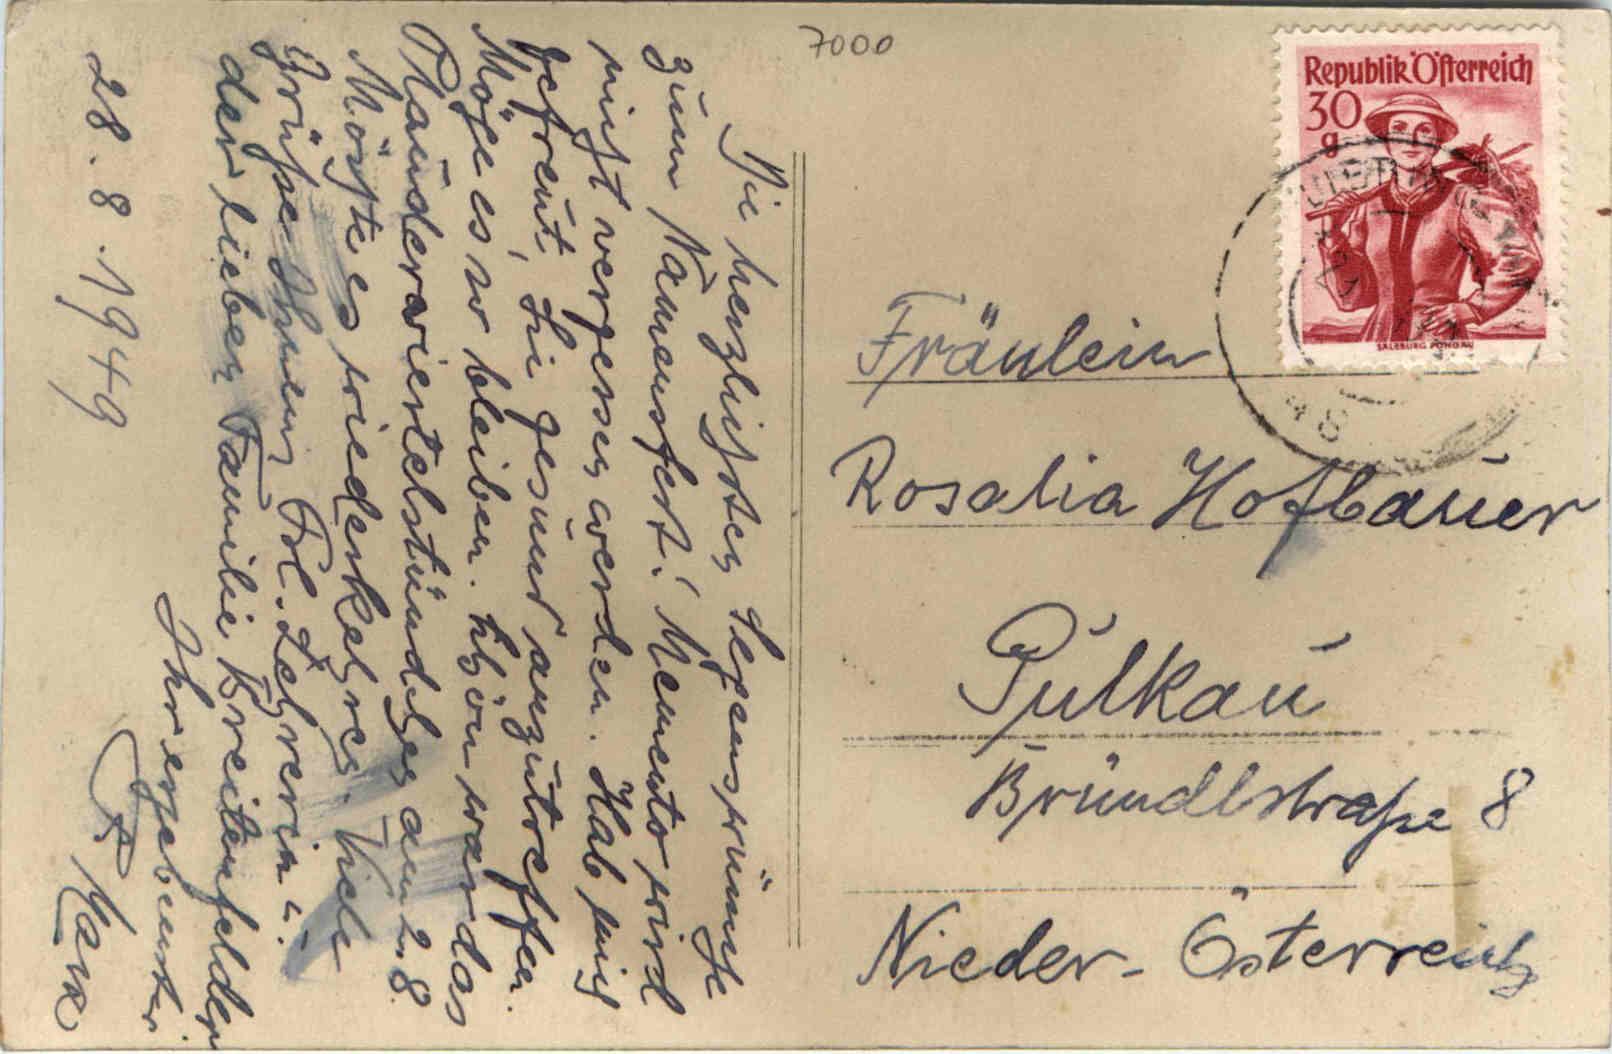 7000
Republik Österreich
30
g
SALZBURG PONGAU
48
Die herzlichsten Segenswünsche
zum Namensfest! Memento wird
nicht vergessen werden. Hab mich
gefreut, Sie gesund anzutreffen.
Möge es so bleiben. Schön war das
Plauderviertelstündchen am 2. 8.
Möchte es wiederkehren. Viele
Grüße Ihnen, Frl. Lehrerin u.
der lieben Familie Breitenfelder
Ihr ergebenster
P. Maur
28. 8. 1949
Fräulein
Rosalia Hofbauer
Pulkau
Bründlstraße 8
Nieder-Österreich